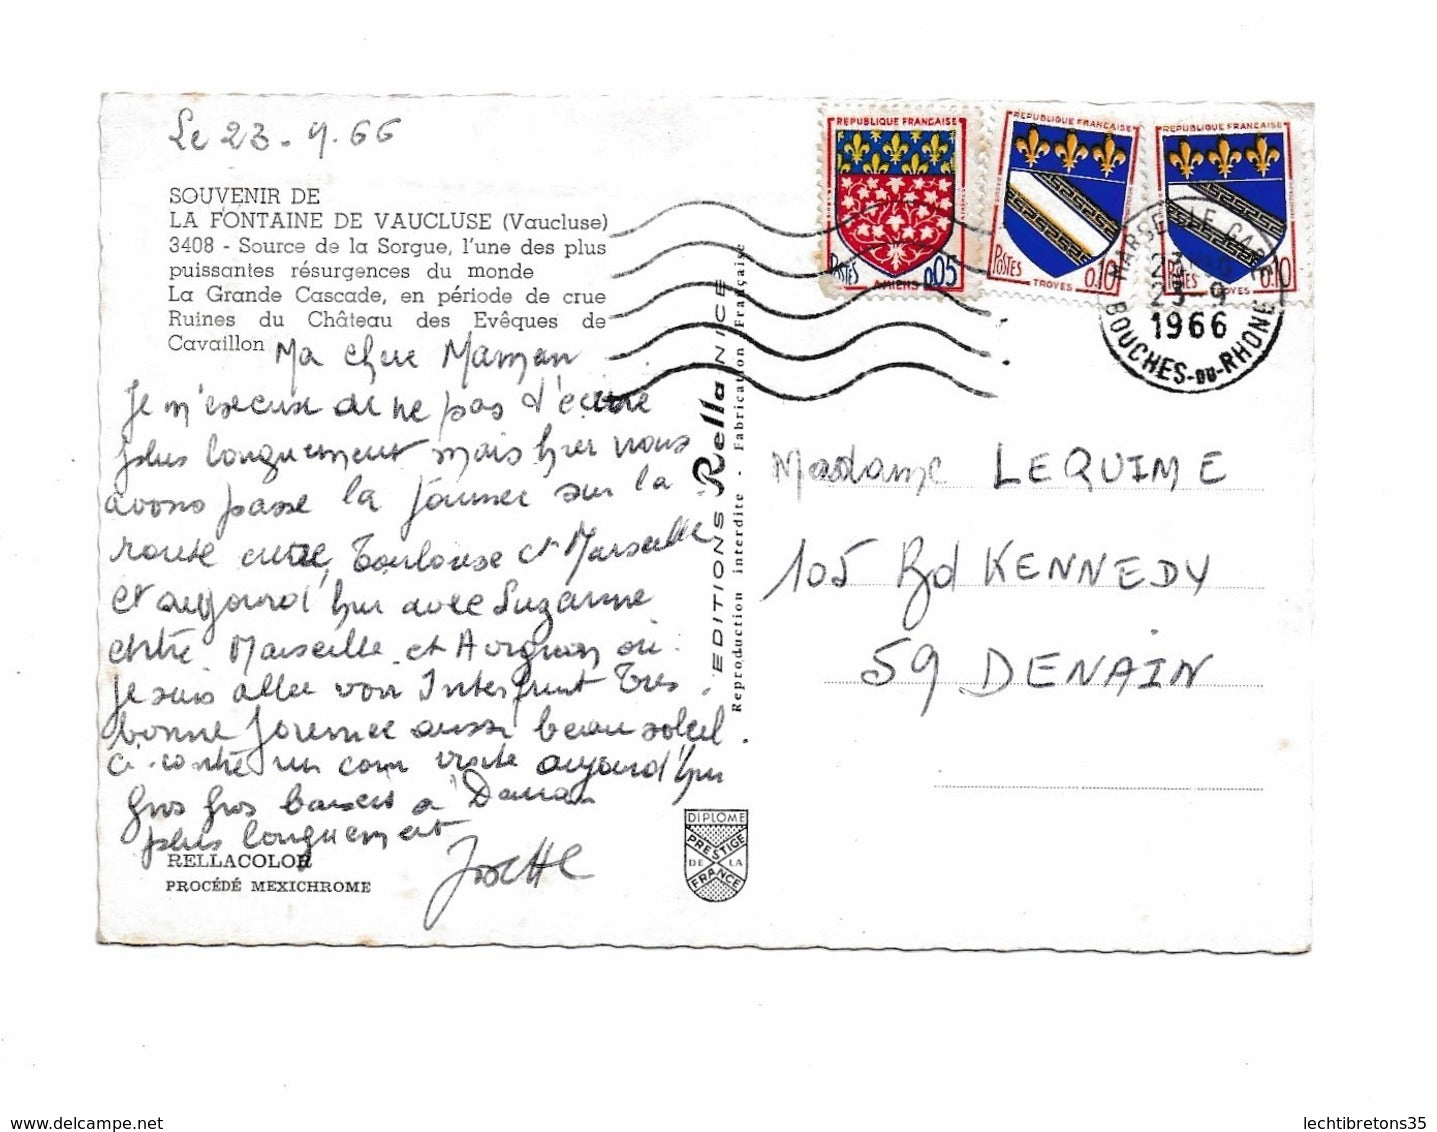 Le 23-9.66
SOUVENIR DE
LA FONTAINE DE VAUCLUSE (Vaucluse)
3408 - Source de la Sorgue, l'une des plus
puissantes résurgences du monde
La Grande Cascade, en période de crue
Ruines du Château des Evêques de
Cavaillon
Ma chere Maman
Je m'excuse de ne pas t'écrire
plus longuement mais hier nous
avons passé la journee sur la
route entre Toulouse et Marseille
et aujourd'hui avec Suzanne
entre Marseille et Avignon où
je suis allee voir Très
bonne journee aussi beau soleil
ci-contre un coin visité aujourd'hui
gros gros baisers à
plus longuement
Josette
RELLACOLOR
PROCÉDÉ MEXICHROME
EDITIONS Rella NICE
Reproduction interdite - Fabrication Française
DIPLOME
PRESTIGE
DE LA
FRANCE
REPUBLIQUE FRANÇAISE
POSTES 0,05
AMIENS
REPUBLIQUE FRANÇAISE
POSTES 0.10
TROYES
REPUBLIQUE FRANÇAISE
POSTES 0.10
TROYES
MARSEILLE GARE
23-9
1966
BOUCHES-DU-RHONE
Madame LEQUIME
105 Bd KENNEDY
59 DENAIN
delcampe.net
lechtibretons35